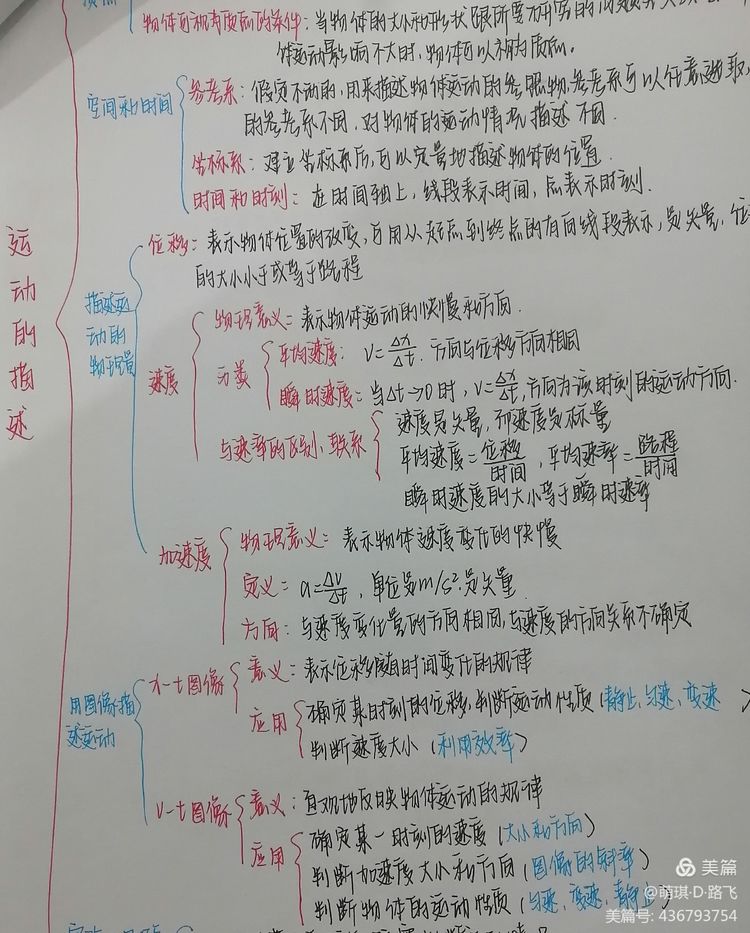 物体可视为质点的条件：当物体的大小和形状跟所要研究的问题
体运动影响不大时，物体可以视为质点。
空间和时间
参考系：假定不动的，用来描述物体运动的参照物，参考系可以任意选取，
的参考系不同，对物体的运动情况描述不同．
坐标系：建立坐标系后，可以定量地描述物体的位置．
时间和时刻：在时间轴上，线段表示时间，点表示时刻．
运动的描述
描述运动的物理量
位移：表示物体位置的改变，可用从起点到终点的有向线段表示，是矢量，位
的大小小于或等于路程
速度
物理意义：表示物体运动的快慢和方向．
分类
平均速度：v=Δx/Δt．方向与位移方向相同
瞬时速度：当Δt→0时，v=Δx/Δt，方向为该时刻的运动方向．
与速率的区别、联系
速度是矢量，而速度是标量
平均速度=位移/时间，平均速率=路程/时间
瞬时速度的大小等于瞬时速率
加速度
物理意义：表示物体速度变化的快慢
定义：a=Δv/Δt，单位是m/s²．是矢量．
方向：与速度变化量的方向相同，与速度的方向关系不确定
用图像描述运动
x-t图像
意义：表示位移随时间变化的规律
应用
确定某时刻的位移，判断运动性质（静止、匀速、变速
判断速度大小（利用效率）
v-t图像
意义：直观地反映物体运动的规律
应用
确定某一时刻的速度（大小和方向）
判断加速度大小和方向（图像的斜率）
判断物体的运动性质（匀速、变速、静止）
美篇
@萌琪·D·路飞
美篇号: 436793754